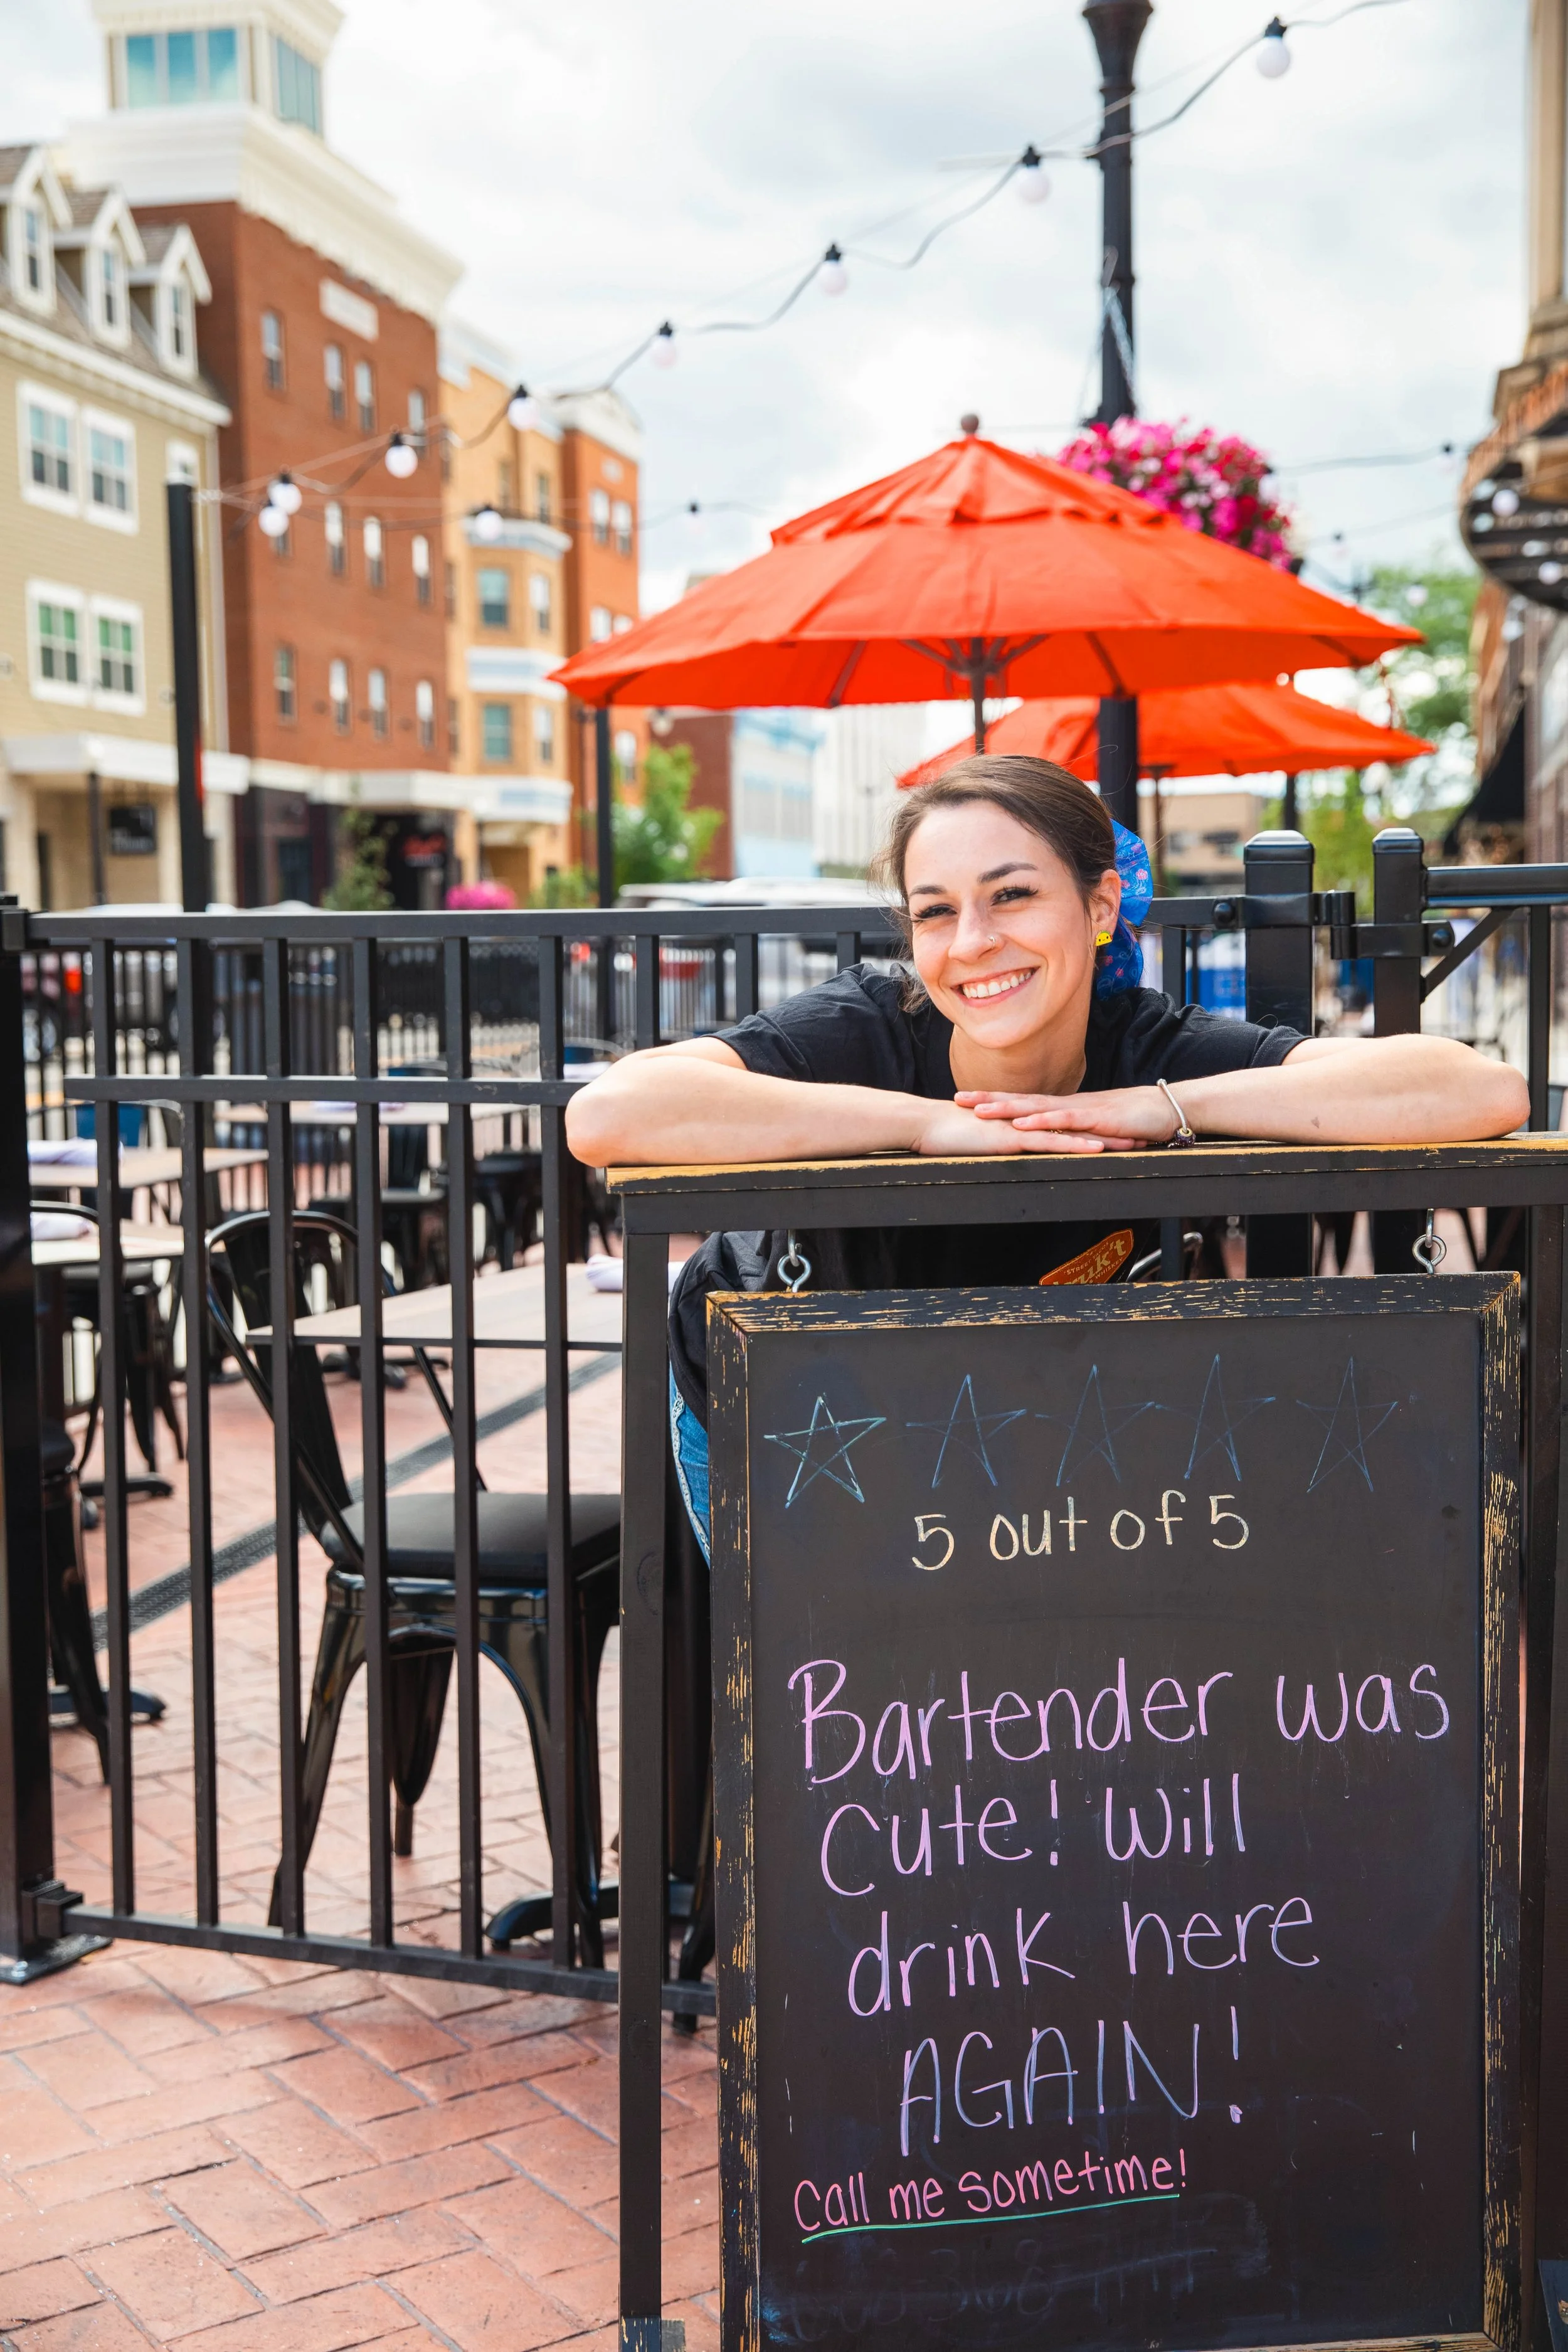 5 out of 5
Bartender was
cute! Will
drink here
AGAIN!
Call me sometime!